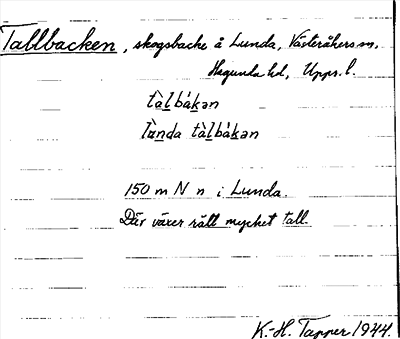 Tallbacken, skogsbacke å Lunda, Västeråkers sn,
Hagunda hd, Upps. l.
tàl̲bák̲an
lùn̲da tàl̲bák̲an
150 m N n i Lunda.
Där växer rätt mycket tall.
K.-H. Tapper 1944.